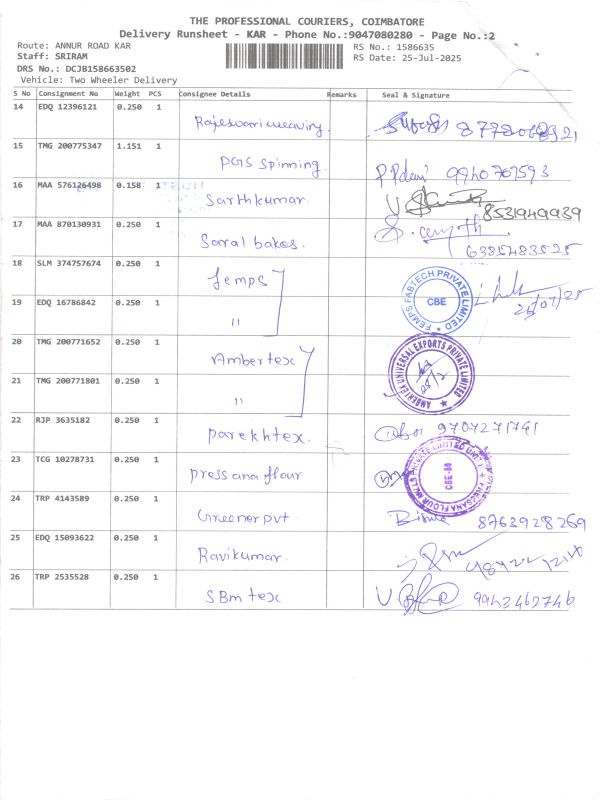 THE PROFESSIONAL COURIERS, COIMBATORE
Delivery Runsheet - KAR - Phone No.:9047080280 - Page No.:2
Route: ANNUR ROAD KAR RS No.: 1586635
Staff: SRIRAM RS Date: 25-Jul-2025
DRS No.: DCJB158663502
Vehicle: Two Wheeler Delivery
S No Consignment No Weight PCS Consignee Details Remarks Seal & Signature
14 EDQ 12396121 0.250 1
Rajeswari weaving.
15 TMG 200775347 1.151 1
PGS Spinning. 9940707593
16 MAA 576126498 0.158 1
Sarthkumar. 8531949939
17 MAA 870130931 0.250 1
Saral bakes. 6385483525
18 SLM 374757674 0.250 1
Femps FEMPS FABTECH PRIVATE LIMITED CBE
19 EDQ 16786842 0.250 1
"
20 TMG 200771652 0.250 1
Ambertex AMBERTEX UNIVERSAL EXPORTS PRIVATE LIMITED
21 TMG 200771801 0.250 1
"
22 RJP 3635182 0.250 1
parekhtex.
23 TCG 10278731 0.250 1
pressana flour
24 TRP 4143589 0.250 1
Greener pvt 8763928269
25 EDQ 15093622 0.250 1
Ravikumar.
26 TRP 2535528 0.250 1
SBm tex 9943462746